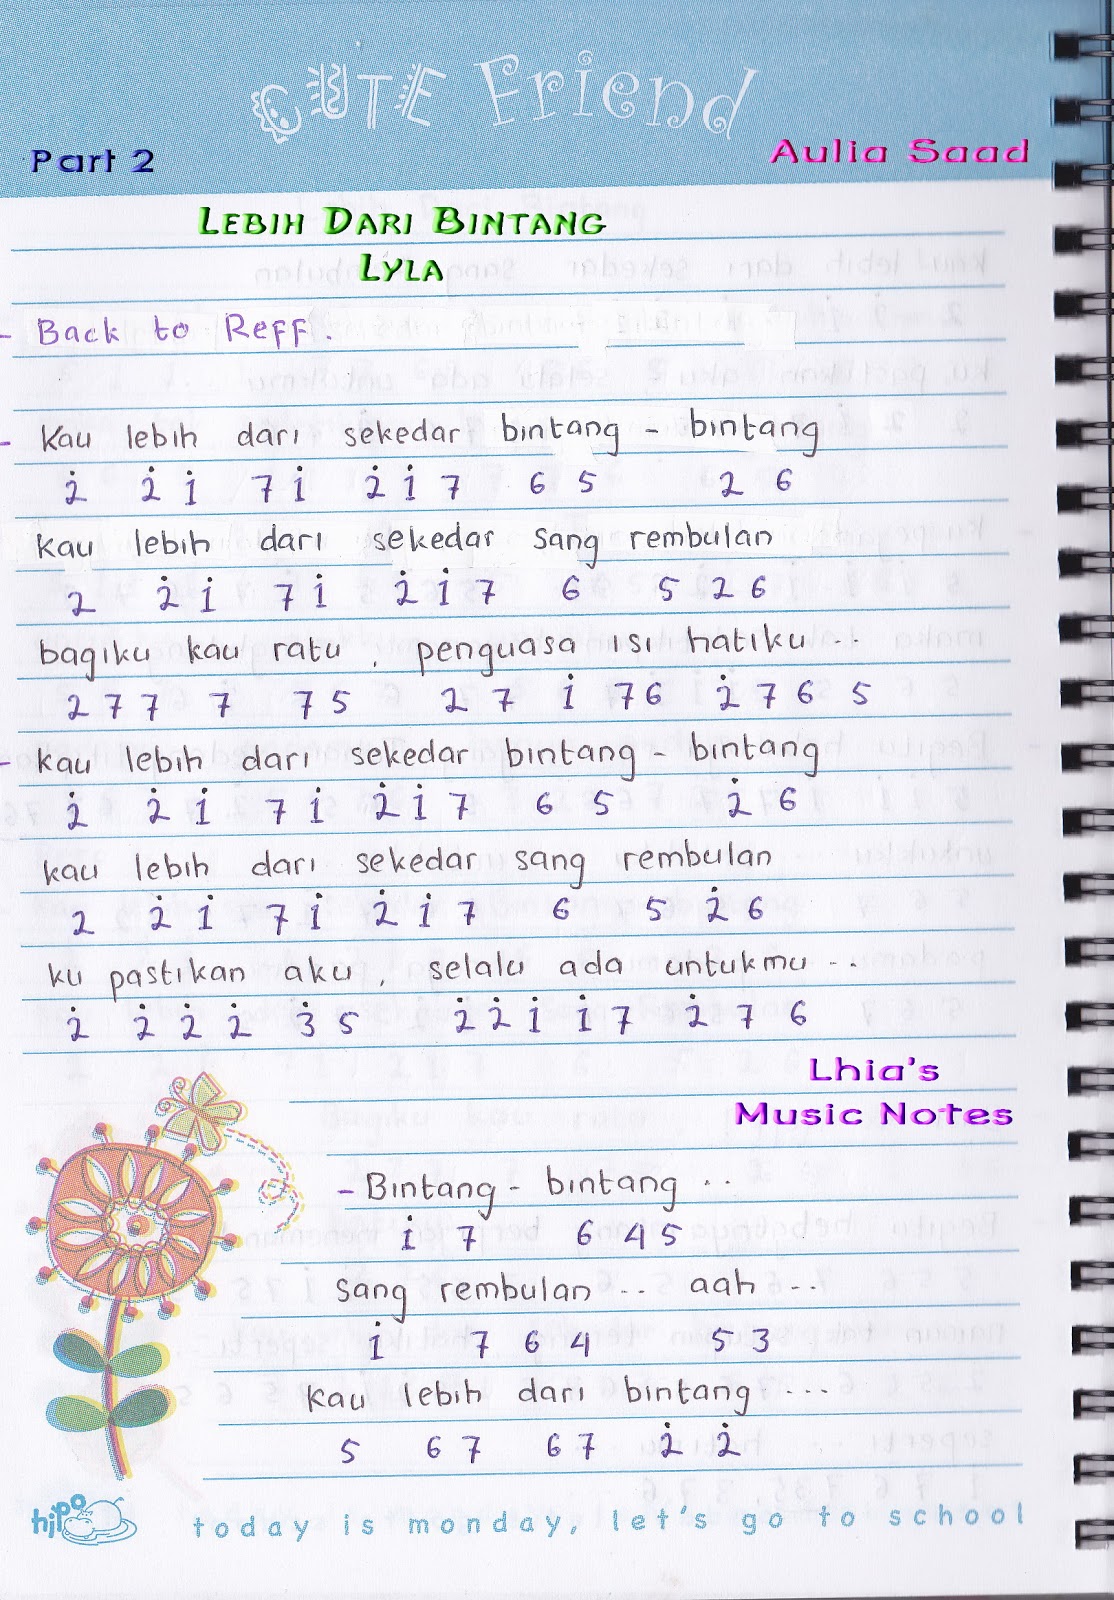 CUTE Friend
Part 2
Aulia Saad
Lebih Dari Bintang
Lyla
- Back to Reff.
- Kau lebih dari sekedar bintang - bintang
2̇ 2̇ 1̇ 7 1̇ 2̇ 1̇ 7 6 5 2 6
kau lebih dari sekedar sang rembulan
2 2̇ 1̇ 7 1̇ 2̇ 1̇ 7 6 5 2 6
bagiku kau ratu, penguasa isi hatiku...
2 7 7 7 7 5 2 7 1̇ 7 6 2̇ 7 6 5
- kau lebih dari sekedar bintang - bintang
2̇ 2̇ 1̇ 7 1̇ 2̇ 1̇ 7 6 5 2̇ 6
kau lebih dari sekedar sang rembulan
2 2̇ 1̇ 7 1̇ 2̇ 1̇ 7 6 5 2̇ 6
ku pastikan aku, selalu ada untukmu...
2̇ 2̇ 2̇ 2̇ 3̇ 5 2̇ 2̇ 1̇ 1̇ 7 2̇ 7 6
Lhia's
Music Notes
- Bintang - bintang ..
1̇ 7 6 4 5
sang rembulan .. aah ...
1̇ 7 6 4 5 3
kau lebih dari bintang ...
5 6 7 6 7 2̇ 2̇
hipo
today is monday, let's go to school